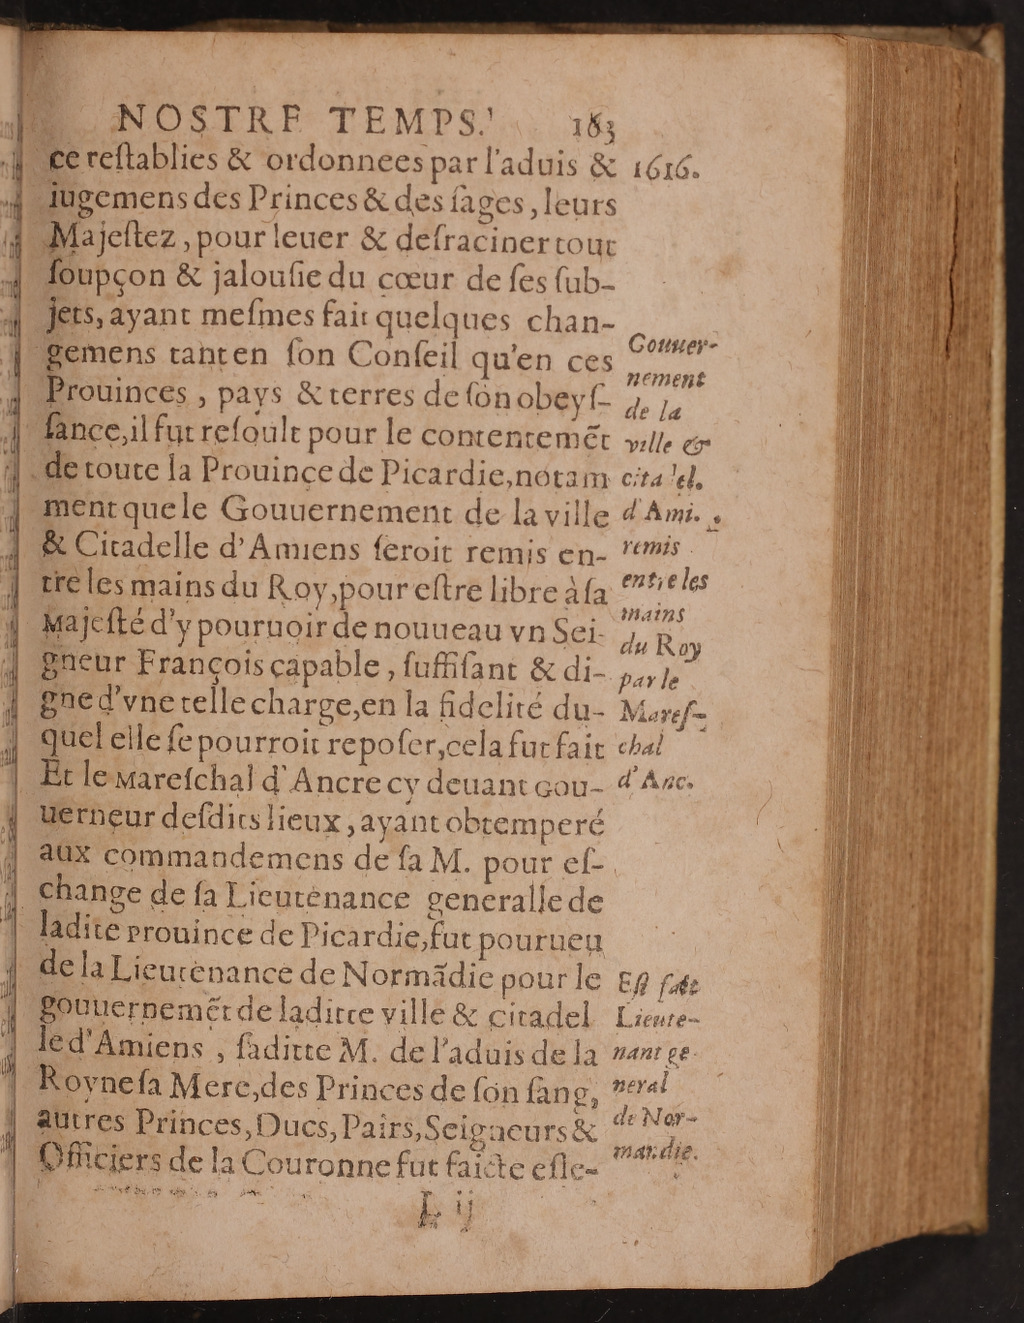 NOSTRE TEMPS. 163
ce reſtablies & ordonnees par l'aduis & 1616.
iugemens des Princes & des ſages, leurs
Majeſtez, pour leuer & deſraciner tout
ſoupçon & jalouſie du cœur de ſes ſub-
jets, ayant meſmes fait quelques chan-
gemens tant en ſon Conſeil qu'en ces
Prouinces, pays & terres de ſon obeyſ-
ſance, il fut reſoult pour le contentemēt
de toute la Prouince de Picardie, notam
ment que le Gouuernement de la ville
& Citadelle d'Amiens ſeroit remis en-
tre les mains du Roy, pour eſtre libre à ſa
Majeſté d'y pouruoir de nouueau vn Sei-
gneur François capable, ſuffiſant & di-
gne d'vne telle charge, en la fidelité du-
quel elle ſe pourroit repoſer, cela fut fait
Et le Mareſchal d'Ancre cy deuant Gou-
uerneur deſdits lieux, ayant obtemperé
aux commandemens de ſa M. pour eſ-
change de ſa Lieutenance generalle de
ladite prouince de Picardie, fut pourueu
de la Lieutenance de Normādie pour le
gouuernemēt de laditte ville & citadel
le d'Amiens, ſaditte M. de l'aduis de la
Royne ſa Mere, des Princes de ſon ſang,
autres Princes, Ducs, Pairs, Seigneurs &
Officiers de la Couronne fut faicte eſle-
L ij
Gouuer-
nement
de la
ville &
citadel.
d'Ami.
remis
entre les
mains
du Roy
par le
Mareſ-
chal
d'Anc.
Eſt fait
Lieute-
nant ge-
neral
de Nor-
mandie.